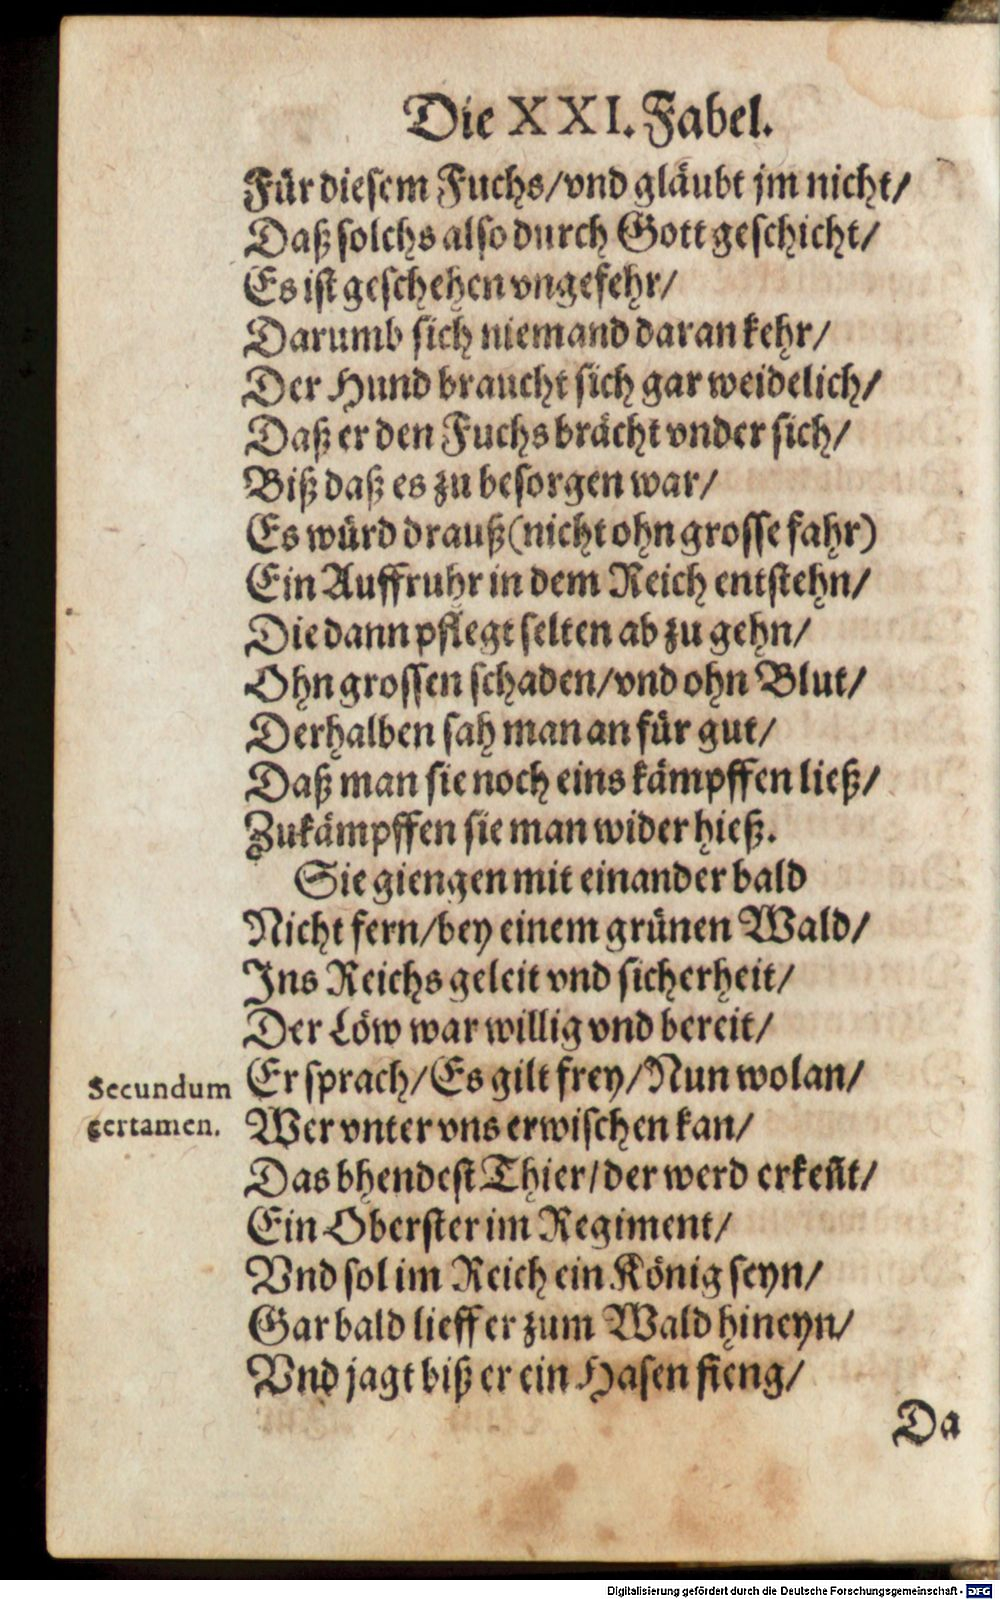 Die XXI. Fabel.
Für diesem Fuchs/vnd gläubt jm nicht/
Daß solchs also durch Gott geschicht/
Es ist geschehen vngefehr/
Darumb sich niemand daran kehr/
Der Hund braucht sich gar weidelich/
Daß er den Fuchs brächt vnder sich/
Biß daß es zu besorgen war/
Es würd drauß (nicht ohn grosse fahr)
Ein Auffruhr in dem Reich entstehn/
Die dann pflegt selten ab zu gehn/
Ohn grossen schaden/vnd ohn Blut/
Derhalben sah man an für gut/
Daß man sie noch eins kämpffen ließ/
Zukämpffen sie man wider hieß.
Sie giengen mit einander bald
Nicht fern/bey einem grünen Wald/
Ins Reichs geleit vnd sicherheit/
Der Löw war willig vnd bereit/
Er sprach/Es gilt frey/Nun wolan/
Wer vnter vns erwischen kan/
Das bhendest Thier/der werd erkeñt/
Ein Oberster im Regiment/
Vnd sol im Reich ein König seyn/
Gar bald lieff er zum Wald hineyn/
Vnd jagt biß er ein Hasen fieng/
Secundum
certamen.
Da
Digitalisierung gefördert durch die Deutsche Forschungsgemeinschaft - DFG